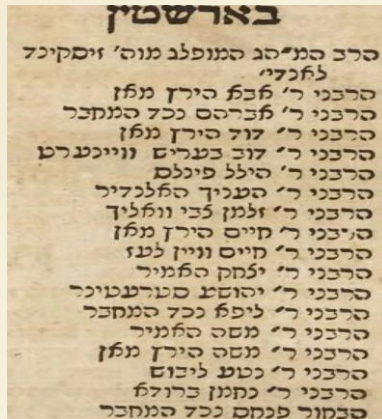 בארשטין
הרב המ״הג המופלג מוה׳ זיסקינד
לאנדי׳
הרבני ר׳ אבא הירץ מאן
הרבני ר׳ אברהם נכד המחבר
הרבני ר׳ דוד הירץ מאן
הרבני ר׳ דוב בעריש וויינערט
הרבני ר׳ הילל פינלס
הרבני ר׳ העניך האלנדיר
הרבני ר׳ זלמן צבי וואליך
הרבני ר׳ חיים הירץ מאן
הרבני ר׳ חיים וויין לעז
הרבני ר׳ יצחק האמיר
הרבני ר׳ יהושע סטרעטינר
הרבני ר׳ ליפא נכד המחבר
הרבני ר׳ משה האמיר
הרבני ר׳ משה הירץ מאן
הרבני ר׳ נטע ליבוש
הרבני ר׳ נחמן ברודא
הבחור פנחס נכד המחבר